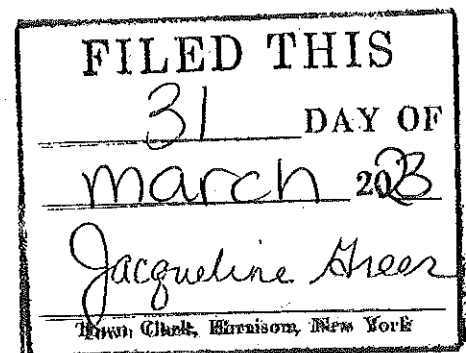 FILED THIS
31 DAY OF
march 2023
Jacqueline Greer
Town Clerk, Harrison, New York